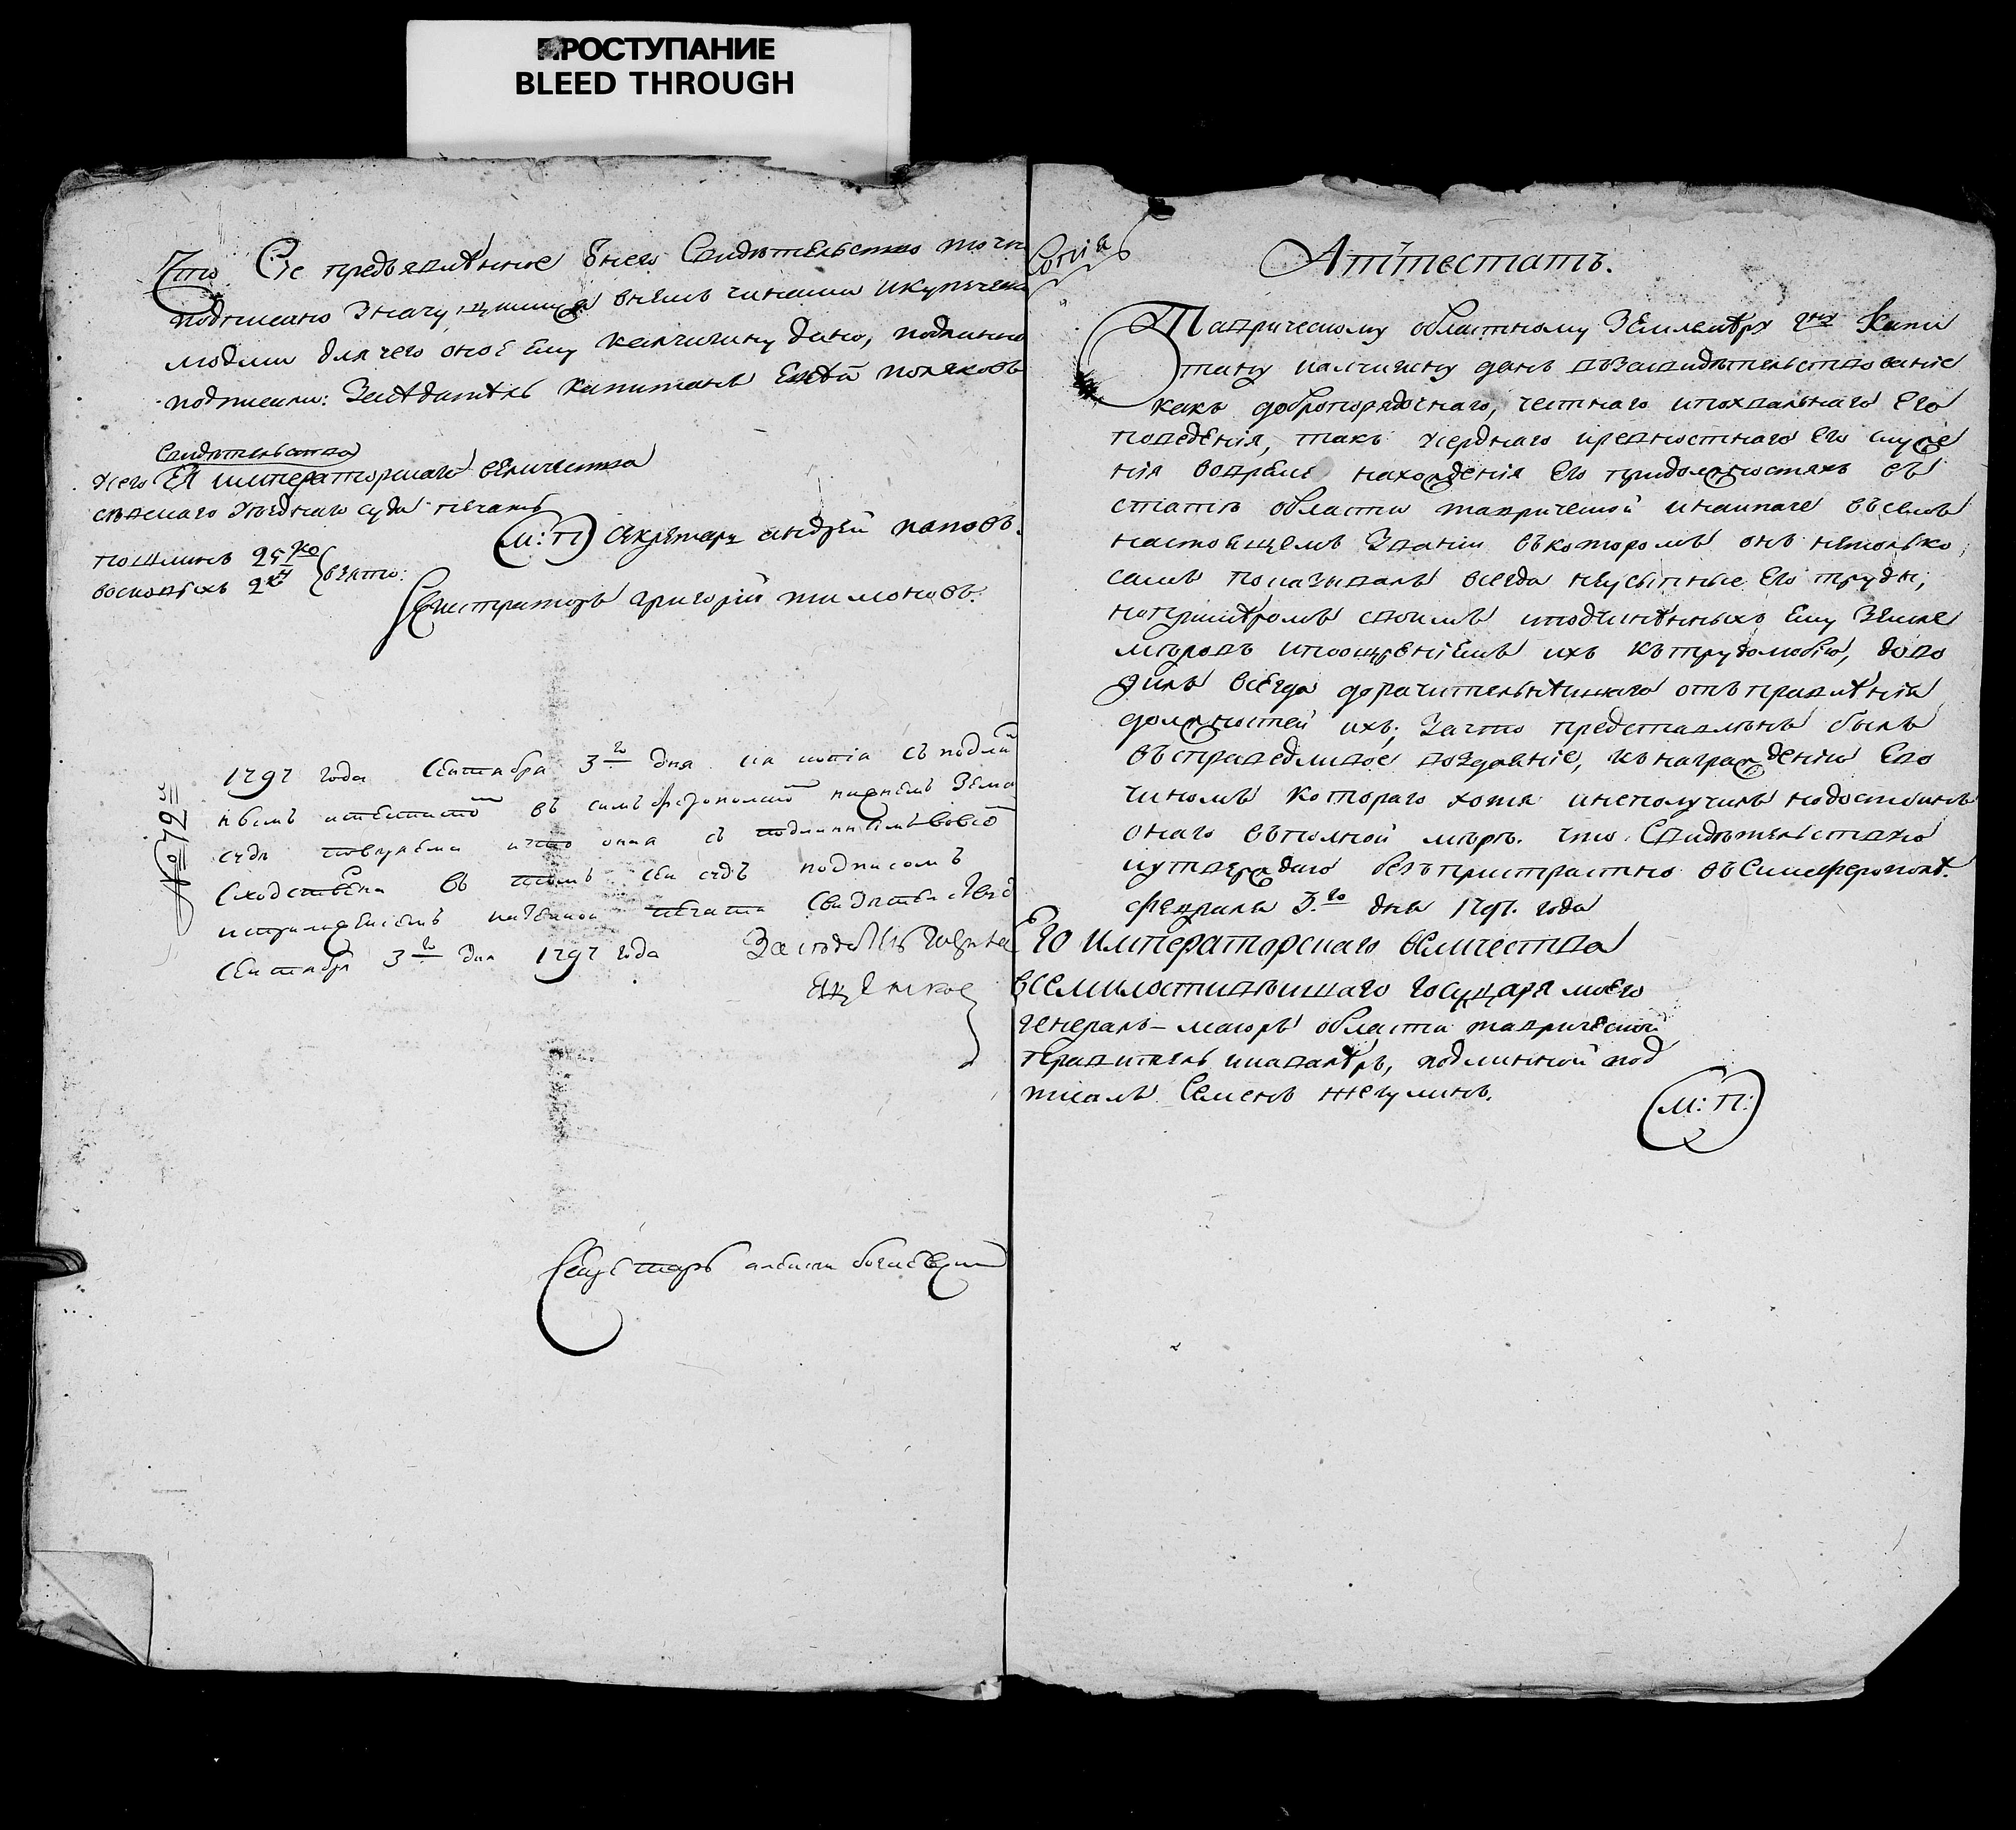 ПРОСТУПАНИЕ
BLEED THROUGH
Что Сіе предъявленное Унего Свидѣтельство точн
подписано Значущимися внемъ чинами икупечески
людми для чего оное Ему Калчигину дано, подлинно
подписали: Заседатель капитанъ Поляковъ
Свидѣтельства
Усего Ея императорскаго величества
уезднаго суда печать
(М: П) Секретарь андрей поповъ.
пошлинъ 25 ко
восковыхъ 2 ко взято:
Регистраторъ григорій тимоновъ.
№ 72
1797 года Сентября 3го дня сія копія съ подли
ннымъ атестато въ симъферополско нижнемъ Земско
суде поверяема ичто оная съ подлиннымъ во всем
Сходственна въ томъ сей судъ подписомъ
иприложениемъ казенной печати Свидетельствуе
Сентября 3го дня 1797 года
Секретарь
Копія
Аттестатъ.
Таврическому областному Землемѣру гну Капи
тану калчигину данъ въЗасвидѣтельствованіе
какъ добропорядочнаго, честнаго ипохвальнаго Его
поведенія, такъ усерднаго иревностнаго Его служе
нія вовремя нахожденія Его придолжностяхъ въ
статѣ области таврической инаипаче въсемъ
настоящемъ Званіи въкоторомъ онъ нетолько
самъ показывалъ всегда неусыпные Его труды,
нопримѣромъ своимъ иподчиненныхъ Ему Земле
мѣровъ ипоощреніемъ ихъ къ трудолюбію, дово
дилъ всегда дорачительнейшаго отправленія
должностей ихъ; Зачто представленъ былъ
въсправедливое воздаяніе, къ награжденію Его
чиномъ котораго хотя инеполучилъ нодостоинъ
онаго въполной мѣрѣ. что Свидѣтельствую
иутверждаю безъпристрастно въСимферополе.
февраля 3.го дня 1797. года
Его императорскаго величества
всемилостивѣишаго государя моего
генералъ-маіоръ области таврической
правитель икавалеръ, подлинной под
писалъ Семенъ Жегулинъ.
(М: П:)